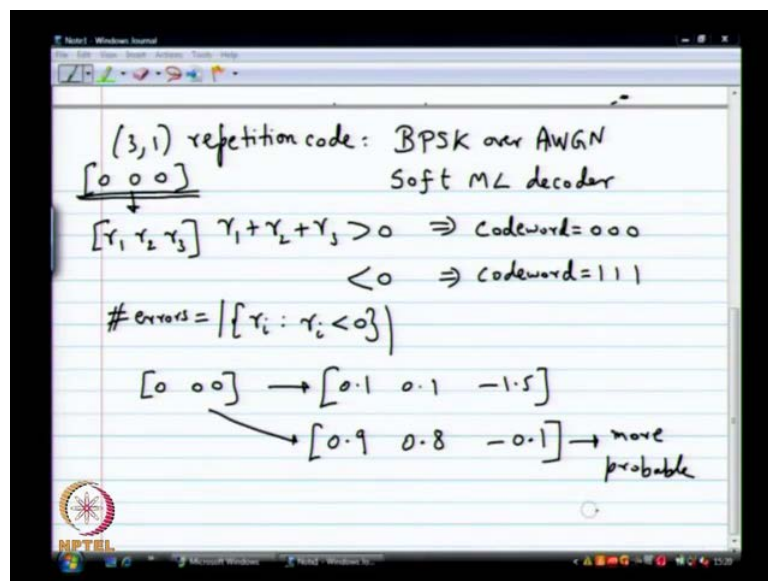 Note1 - Windows Journal
File Edit View Insert Actions Tools Help
(3,1) repetition code: BPSK over AWGN
[0 0 0] Soft ML decoder
[r₁ r₂ r₃] r₁+r₂+r₃ >0 ⇒ Codeword=000
<0 ⇒ Codeword=111
# errors = |{rᵢ : rᵢ<0}|
[0 00] → [0.1 0.1 -1.5]
[0.9 0.8 -0.1] → more
probable
NPTEL
Microsoft Windows Note1 - Windows Jo... 15:20